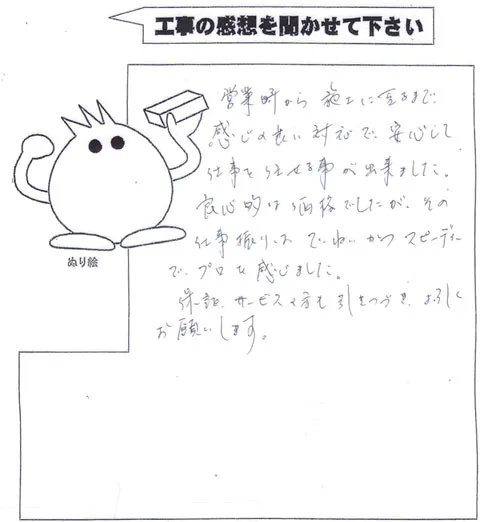 工事の感想を聞かせて下さい
営業時から 施工に至るまで
感じの良い対応で、安心して
仕事を任せる事が出来ました。
良心的な価格でしたが、その
仕事振りは ていねいかつ スピーディー
で、プロを感じました。
保証、サービスの方も引きつづき、よろしく
お願いします。
ぬり絵